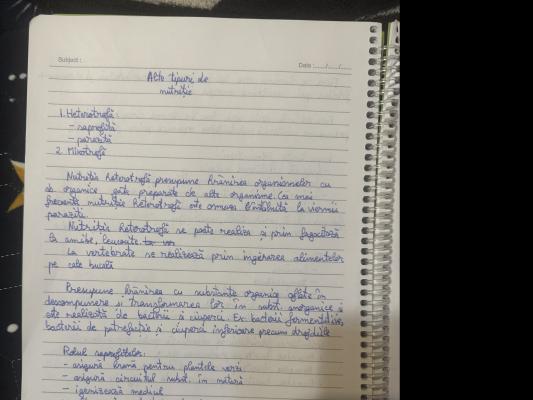 Subject :
Date : / /
Alte tipuri de
nutriție
1. Heterotrofă:
- saprofită
- parazită
2. Mixotrofă
Nutriția heterotrofă presupune hrănirea organismelor cu
sb. organice gata preparate de alte organisme. Cea mai
frecventă nutriție heterotrofă este osmoza întâlnită la viermii
paraziți.
Nutriția heterotrofă se poate realiza și prin fagocitoză
la amibe, leucocite
La vertebrate se realizează prin ingerarea alimentelor
pe cale bucală
Presupune hrănirea cu substanțe organice aflate în
descompunere și transformarea lor în subst. anorganice și
este realizată de bacterii și ciuperci. Ex: bacterii fermentative,
bacterii de putrefacție și ciuperci inferioare precum drojdiile
Rolul saprofitelor:
- asigură hrană pentru plantele verzi
- asigură circuitul subst. în natură
- igienizează mediul